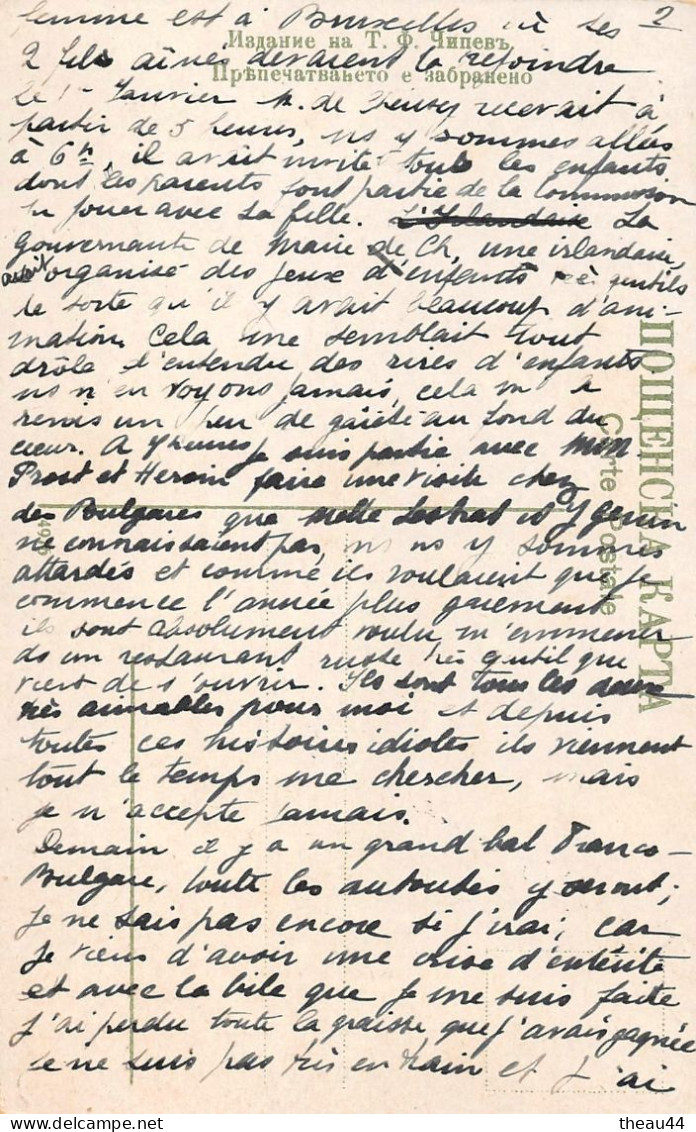 femme est à Bruxelles et à ses 2
Издание на Т. Ф. Чипевъ.
2 fils aînés devaient la rejoindre
Прѣпечатването е забранено
Le 1er Janvier M. de recevait à
partir de 5 heures, ns y sommes allés
à 6h, il avait invité tous les enfants
dont les parents font partie de la Commission
jouer avec sa fille. L'Irlandaise La
gouvernante de Marie de Ch, une irlandaise,
avait organisé des jeux d'enfants gentils
de sorte qu'il y avait beaucoup d'ani-
mation. Cela me semblait tout
drôle d'entendre des rires d'enfants
ns n'en voyons jamais, cela m'a
remis un peu de gaieté au fond du
cœur. A 7 heures je suis partie avec MM.
Prost et Heroin faire une visite chez
des Bulgares que Melle Lestrat et
ne connaissaient pas, ns ns y sommes
attardés et comme ils voulaient que je
commence l'année plus gaiement
ils ont absolument voulu m'emmener
ds un restaurant russe très gentil que
vient de s'ouvrir. Ils sont tous les deux
très aimables pour moi et depuis
toutes ces histoires idiotes ils viennent
tout le temps me chercher, mais
je n'accepte jamais.
Demain il y a un grand bal Franco-
Bulgare, toutes les autorités y seront;
je ne sais pas encore si j'irai; car
je viens d'avoir une crise d'entérite
et avec la bile que je me suis faite
j'ai perdu toute la graisse que j'avais gagnée
je ne suis pas très en train et j'ai
ПОЩЕНСКА КАРТА
Carte Postale
theau44